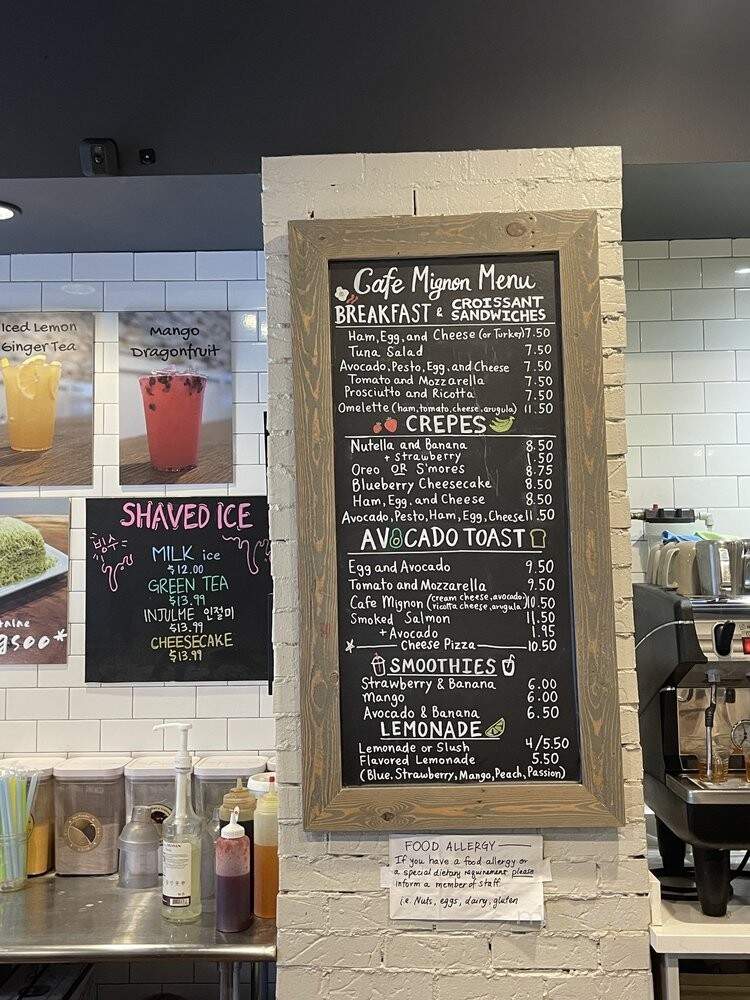 Iced Lemon
Ginger Tea
Mango
Dragonfruit
SHAVED ICE
빙수
MILK ice
$12.00
GREEN TEA
$13.99
INJULME 인절미
$13.99
CHEESECAKE
$13.99
Cafe Mignon Menu
BREAKFAST & CROISSANT SANDWICHES
Ham, Egg, and Cheese (or Turkey) 7.50
Tuna Salad 7.50
Avocado, Pesto, Egg, and Cheese 7.50
Tomato and Mozzarella 7.50
Prosciutto and Ricotta 7.50
Omelette (ham, tomato, cheese, arugula) 11.50
CREPES
Nutella and Banana 8.50
+ strawberry 1.50
Oreo OR S'mores 8.75
Blueberry Cheesecake 8.50
Ham, Egg, and Cheese 8.50
Avocado, Pesto, Ham, Egg, Cheese 11.50
AVOCADO TOAST
Egg and Avocado 9.50
Tomato and Mozzarella 9.50
Cafe Mignon (cream cheese, avocado, ricotta cheese, arugula) 10.50
Smoked Salmon 11.50
+ Avocado 1.95
Cheese Pizza 10.50
SMOOTHIES
Strawberry & Banana 6.00
Mango 6.00
Avocado & Banana 6.50
LEMONADE
Lemonade or Slush 4/5.50
Flavored Lemonade 5.50
(Blue. Strawberry, Mango, Peach, Passion)
FOOD ALLERGY
If you have a food allergy or
a special dietary requirement please
inform a member of staff.
i.e. Nuts, eggs, dairy, gluten